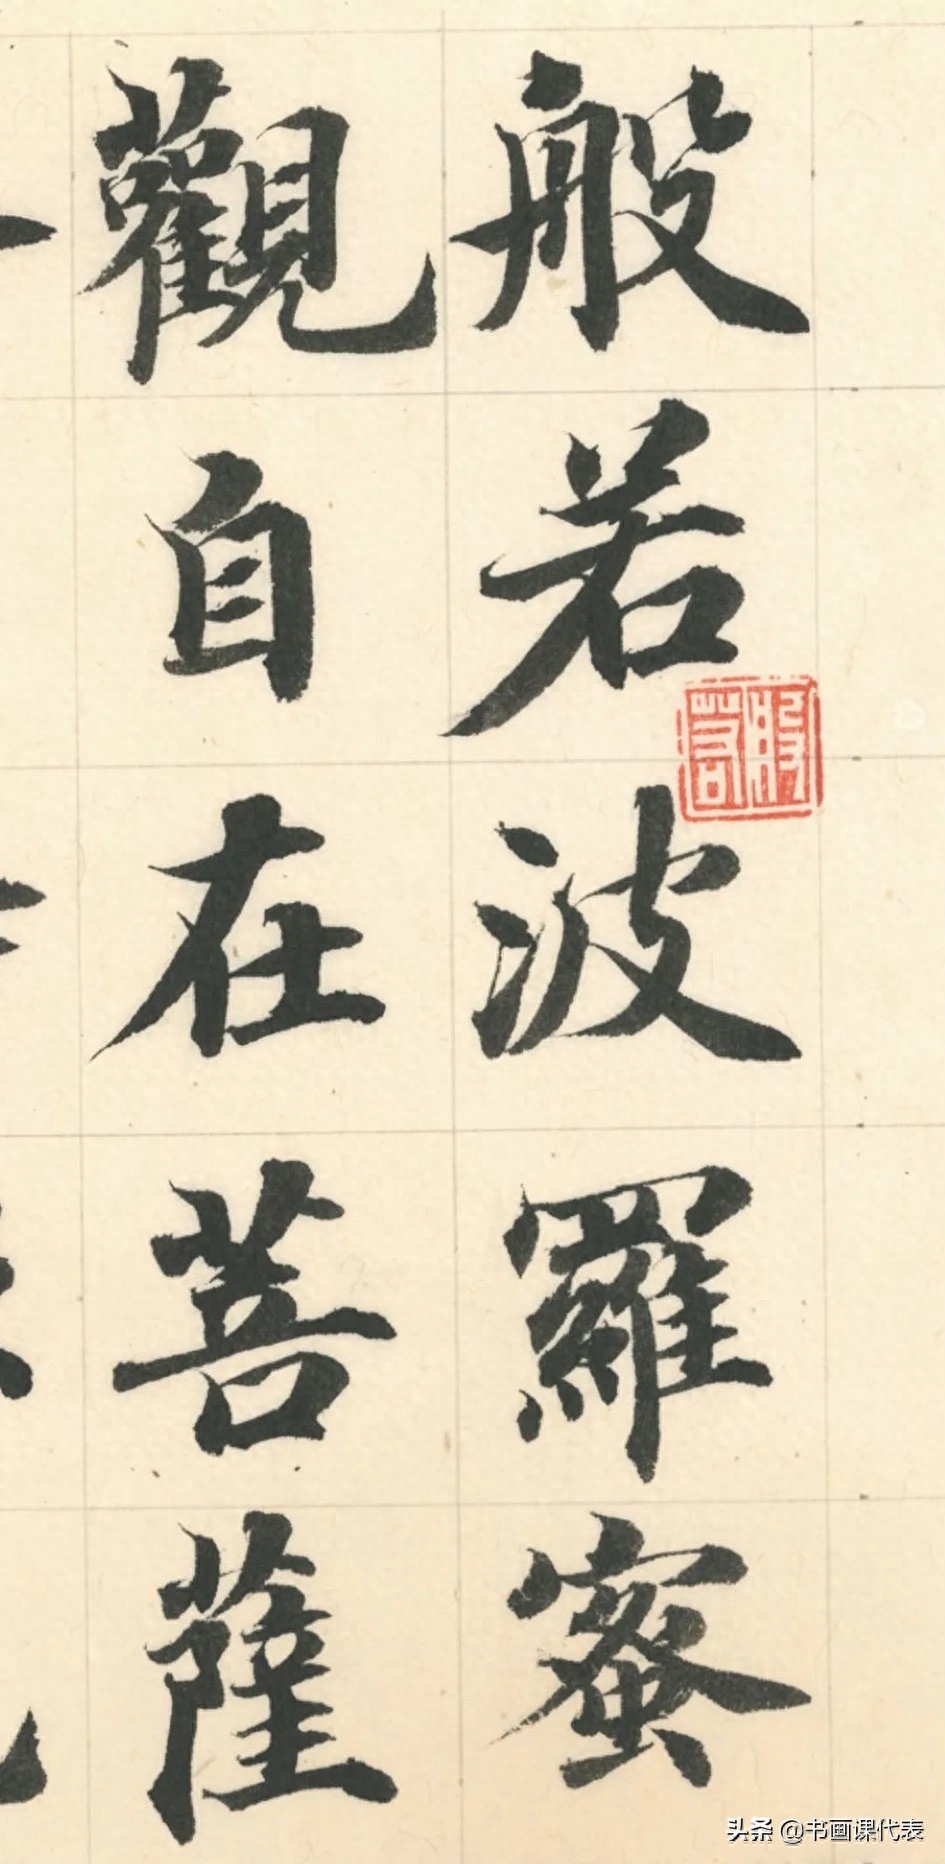 般若波羅蜜
觀自在菩薩
般若
头条 @书画课代表